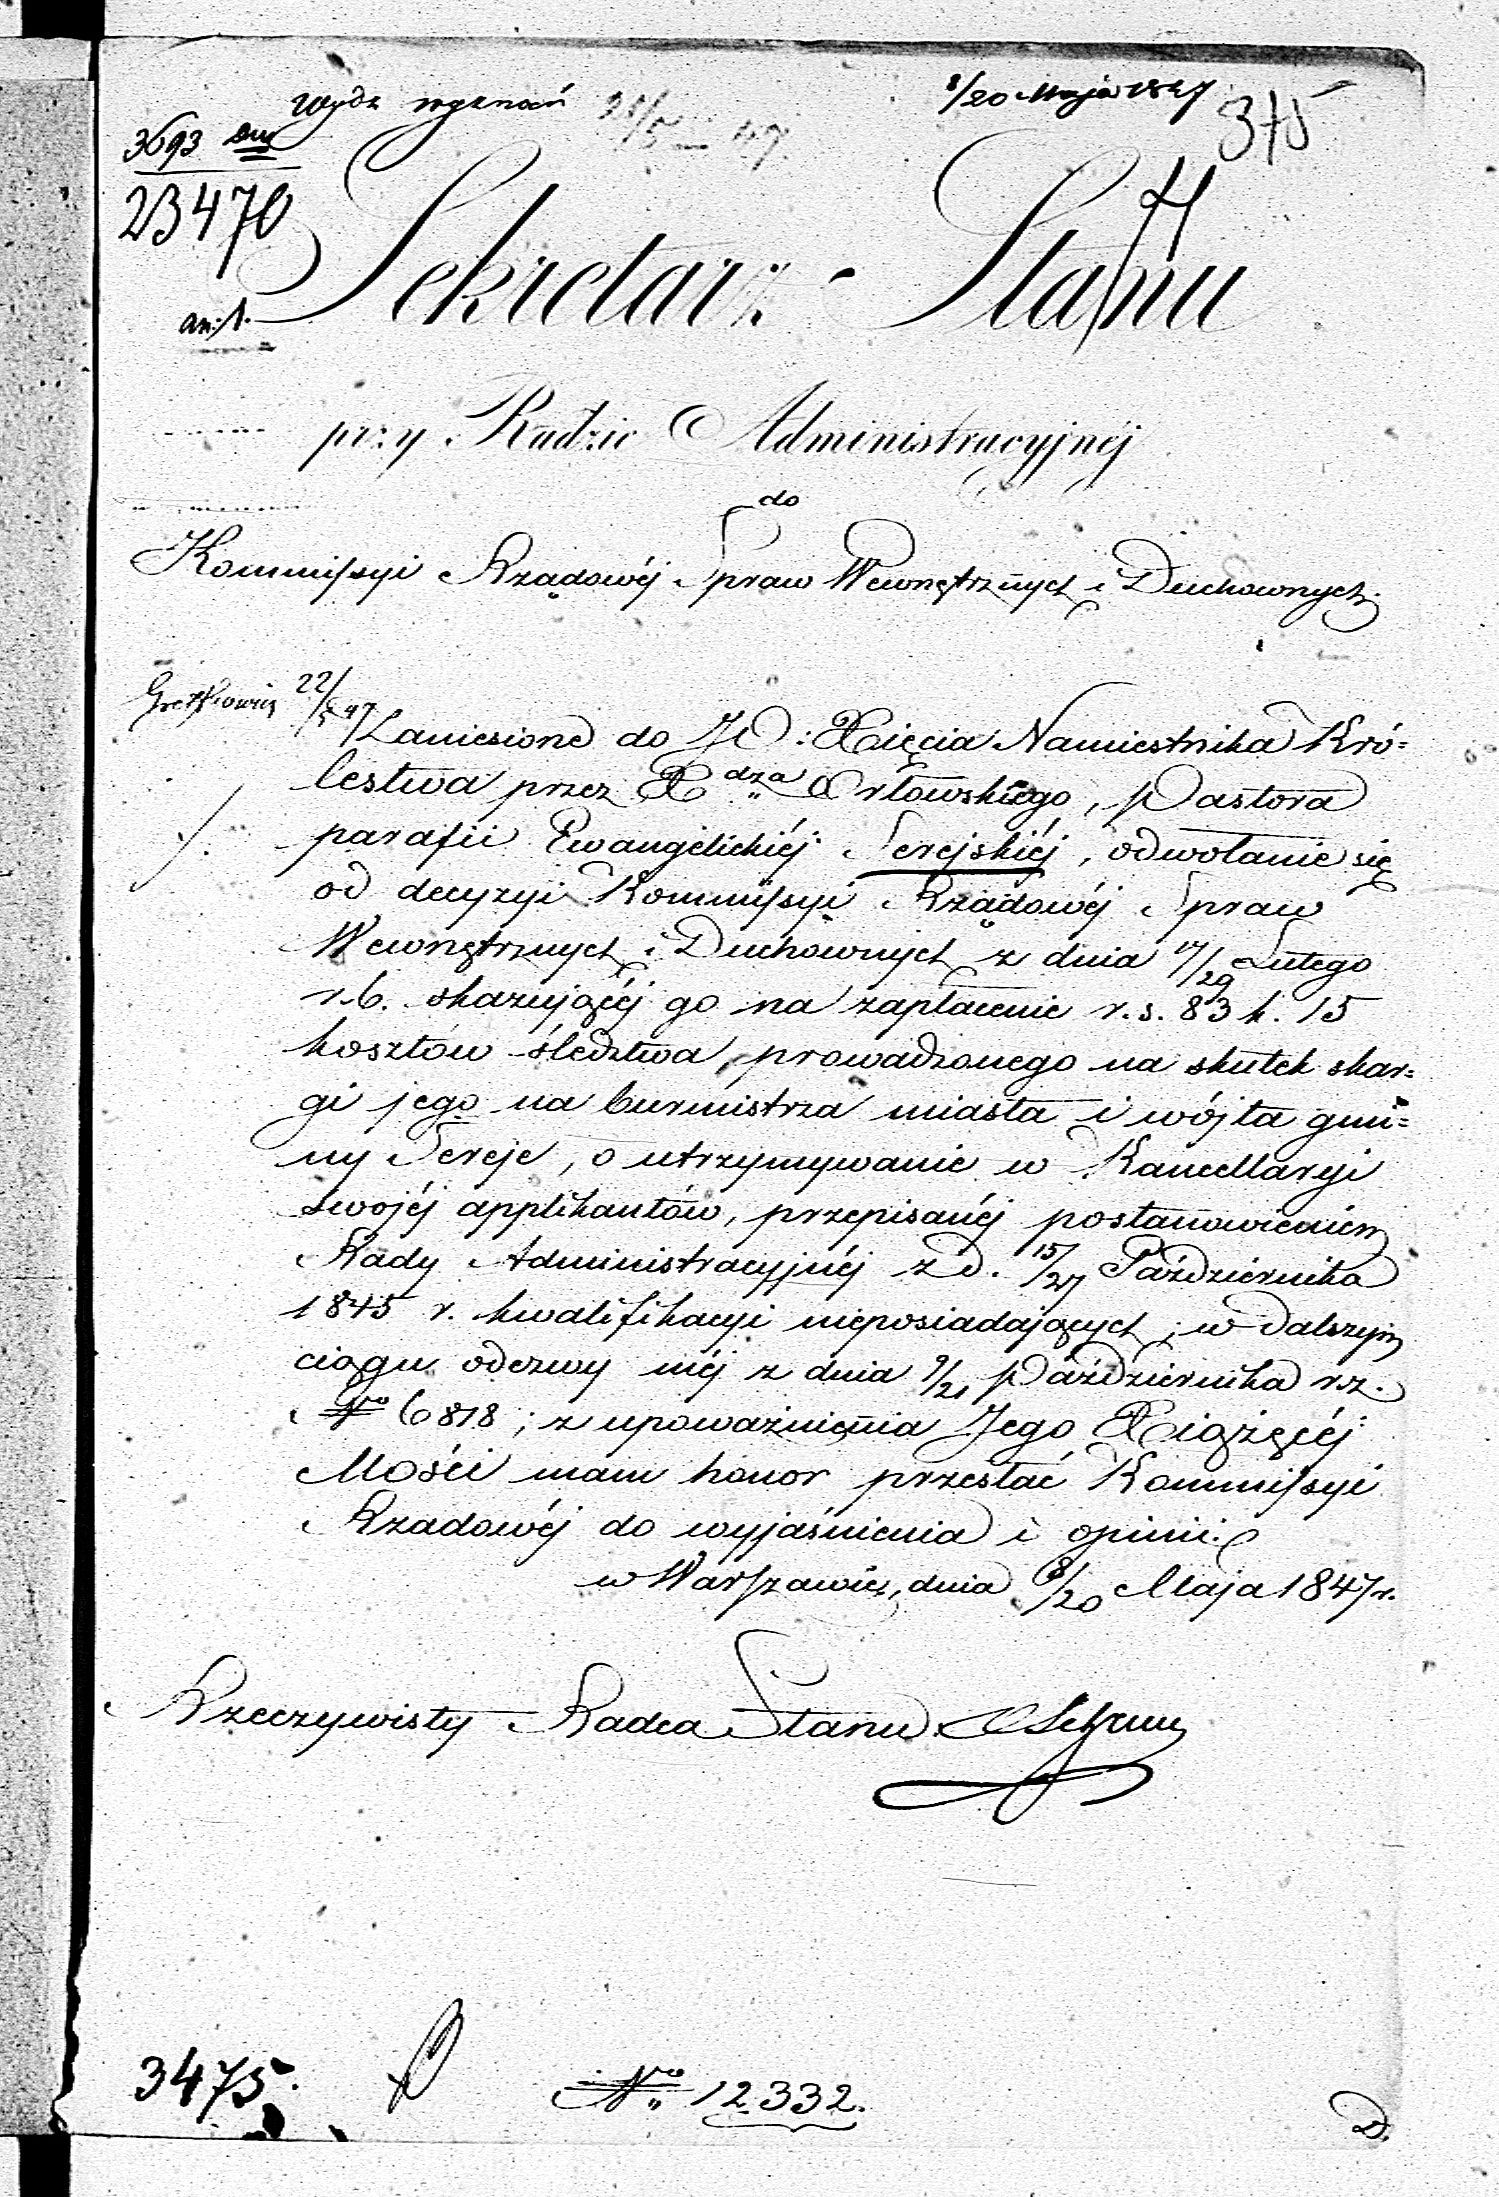 Wydz wyznań 21/5 47.
8/20 Maja 1847
375
3693
23470
Sekretarz Stanu
an: 1.
przy Radzie Administracyjnéj
do
Kommissyi Rządowéj Spraw Wewnętrznych i Duchownych.
22/5 47
Zaniesione do JO: Xięcia Namiestnika Kró=
lestwa przez Xdza Orłowskiego, Pastora
parafii Ewangelickiéj Serejskiéj, odwołanie się
od decyzyi Kommissyi Rządowéj Spraw
Wewnętrznych i Duchownych z dnia 17/29 Lutego
r.b. skazującéj go na zapłacenie r.s. 83 k. 15
kosztów śledztwa, prowadzonego na skutek skar=
gi jego na burmistrza miasta i wójta gmi=
ny Sereje, o utrzymywanie w Kancellaryi
swojéj applikantów, przepisanéj postanowieniem
Rady Administracyjnéj z d. 15/27 Października
1845 r. kwalifikacyi nieposiadających; w dalszym
ciągu odezwy méj z dnia 9/21 Października r.z.
No 6818; z upoważnienia Jego Xiążęcéj
Mości mam honor przesłać Kommissyi
Rządowéj do wyjaśnienia i opinii.
w Warszawie, dnia 8/20 Maja 1847 r.
Rzeczywisty Radca Stanu
3475.
No 12332.
D.